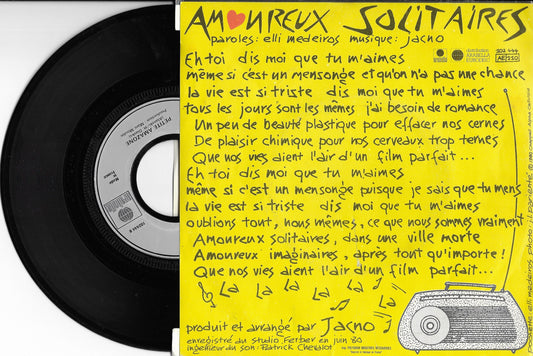 AMOUREUX SOLITAIRES
paroles: elli medeiros musique: jacno
distribution
ARABELLA
EURODISC
102 444
AE/110
Eh toi dis moi que tu m'aimes
même si c'est un mensonge et qu'on n'a pas une chance
la vie est si triste dis moi que tu m'aimes
tous les jours sont les mêmes j'ai besoin de romance
Un peu de beauté plastique pour effacer nos cernes
De plaisir chimique pour nos cerveaux trop ternes
Que nos vies aient l'air d'un film parfait...
Eh toi dis moi que tu m'aimes
même si c'est un mensonge puisque je sais que tu mens
la vie est si triste dis moi que tu m'aimes
oublions tout, nous mêmes, ce que nous sommes vraiment
Amoureux solitaires, dans une ville morte
Amoureux imaginaires, après tout qu'importe!
Que nos vies aient l'air d'un film parfait...
La La La La La La La
produit et arrangé par Jacno
enregistré au studio Ferber en juin 80
ingénieur du son: Patrick Chevalot
PETITE AMAZONE
Made
France
pochette elli medeiros photo: il pariente